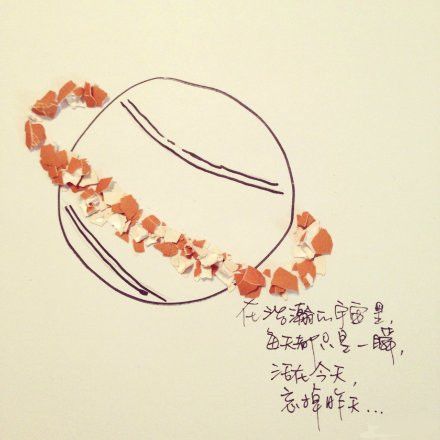 在浩瀚的宇宙里,
每天都只是一瞬,
活在今天,
忘掉昨天...